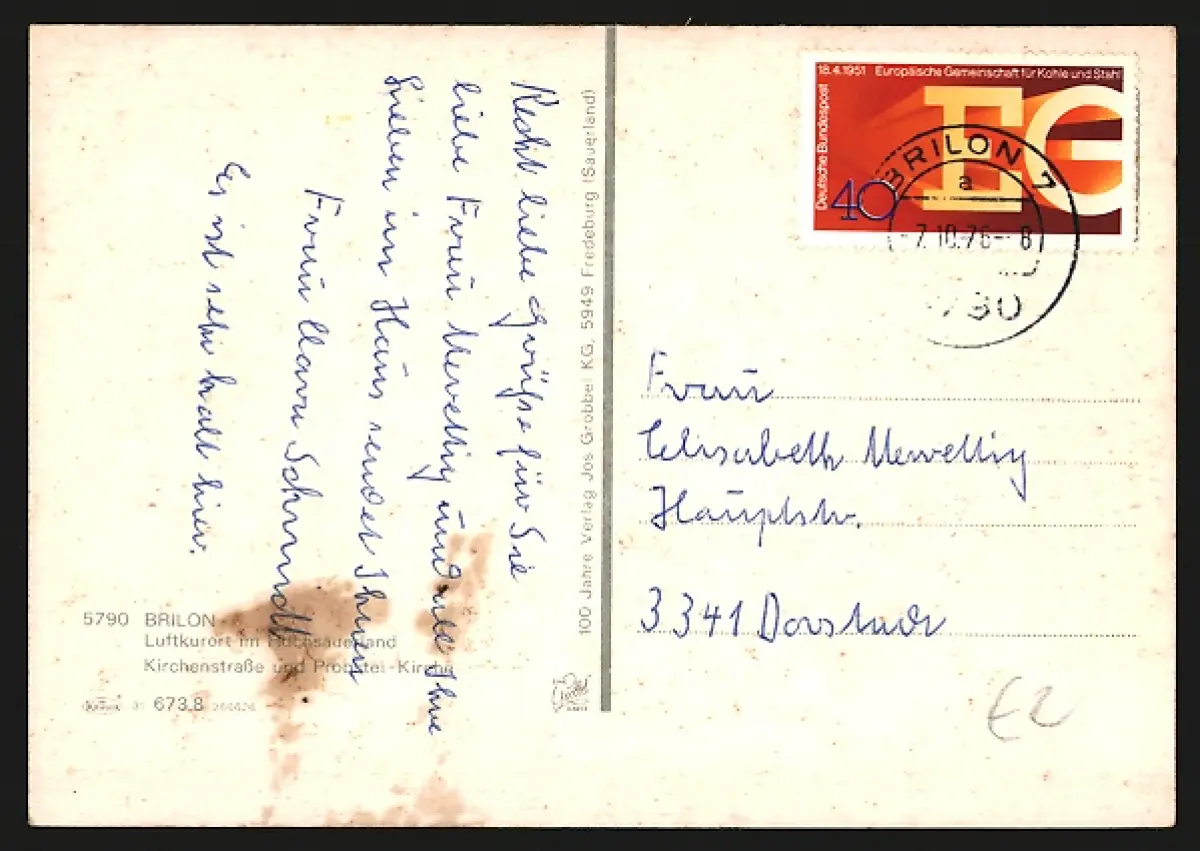 Recht liebe Grüße für Sie
liebe Frau Mewellig und all Ihre
Lieben im Haus sendet Ihnen
Frau Schmidt
Es ist sehr kalt hier.
5790 BRILON
Luftkurort im Hochsauerland
Kirchenstraße und Propstei-Kirche
673.8
100 Jahre Verlag Jos Grobbel KG, 5949 Fredeburg (Sauerland)
18.4.1951 Europäische Gemeinschaft für Kohle und Stahl
Deutsche Bundespost
EG
40
BRILON 7
a
-7.10.76-8
790
Frau
Elisabeth Mewellig
Hauptstr.
3341 Dorstadt
E2